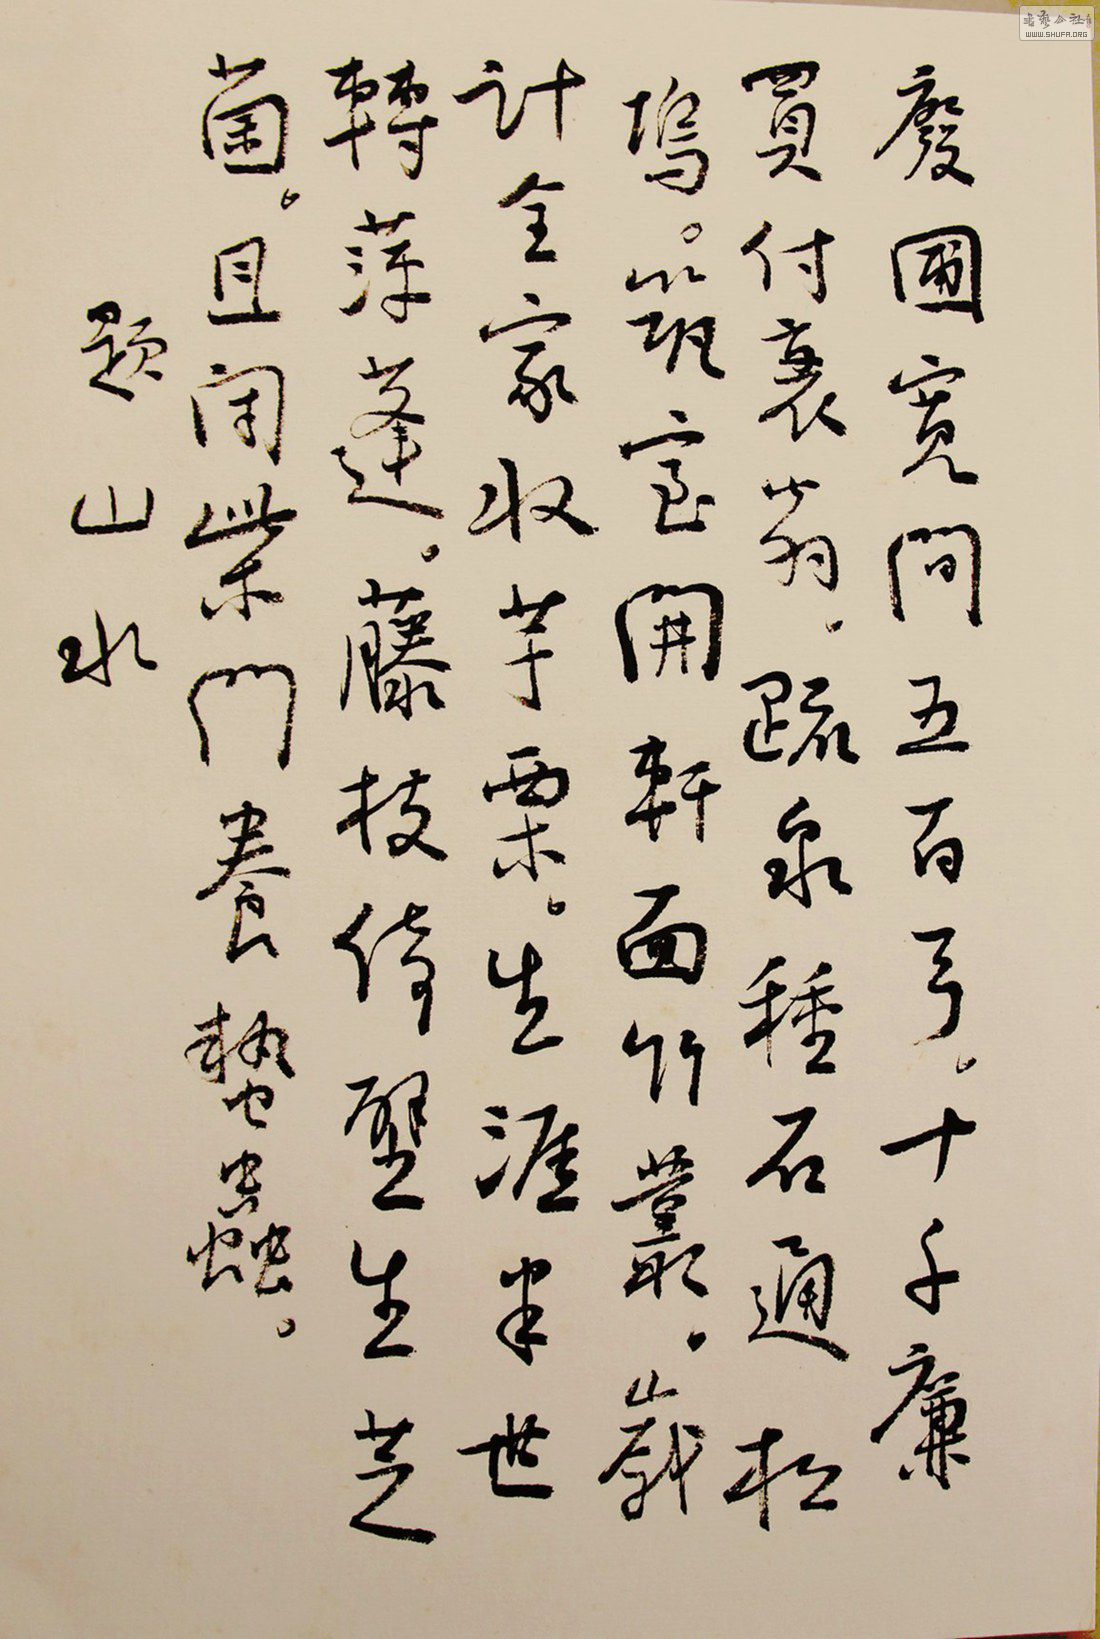 廢圃寬間五百弓。十千廉
買付衰翁。疏泉種石通松
塢。築室開軒面竹叢。歲
計全家收芋栗。生涯半世
轉萍蓬。藤枝倚壁生芝
菌。且閉柴門養蟄蟲。
題山水
WWW.SHUFA.ORG